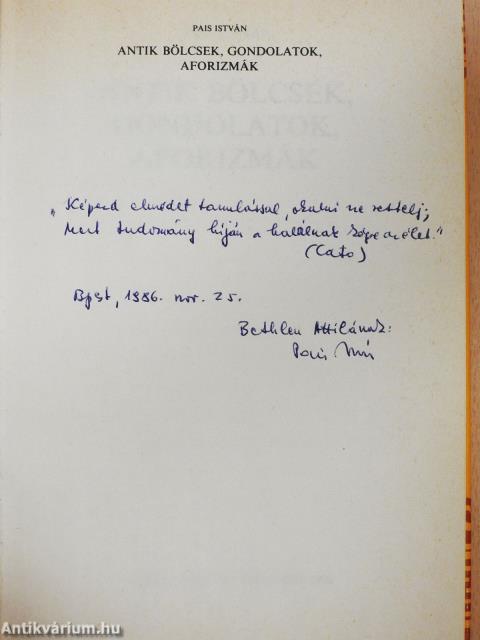 PAIS ISTVÁN
ANTIK BÖLCSEK, GONDOLATOK,
AFORIZMÁK
„Képezd elmédet tanulással, okulni ne restellj;
Mert tudomány híján a halálnak képe az élet."
(Cato)
Bpst, 1986. nov. 25.
Bethlen Attilának:
Pais István
Antikvárium.hu